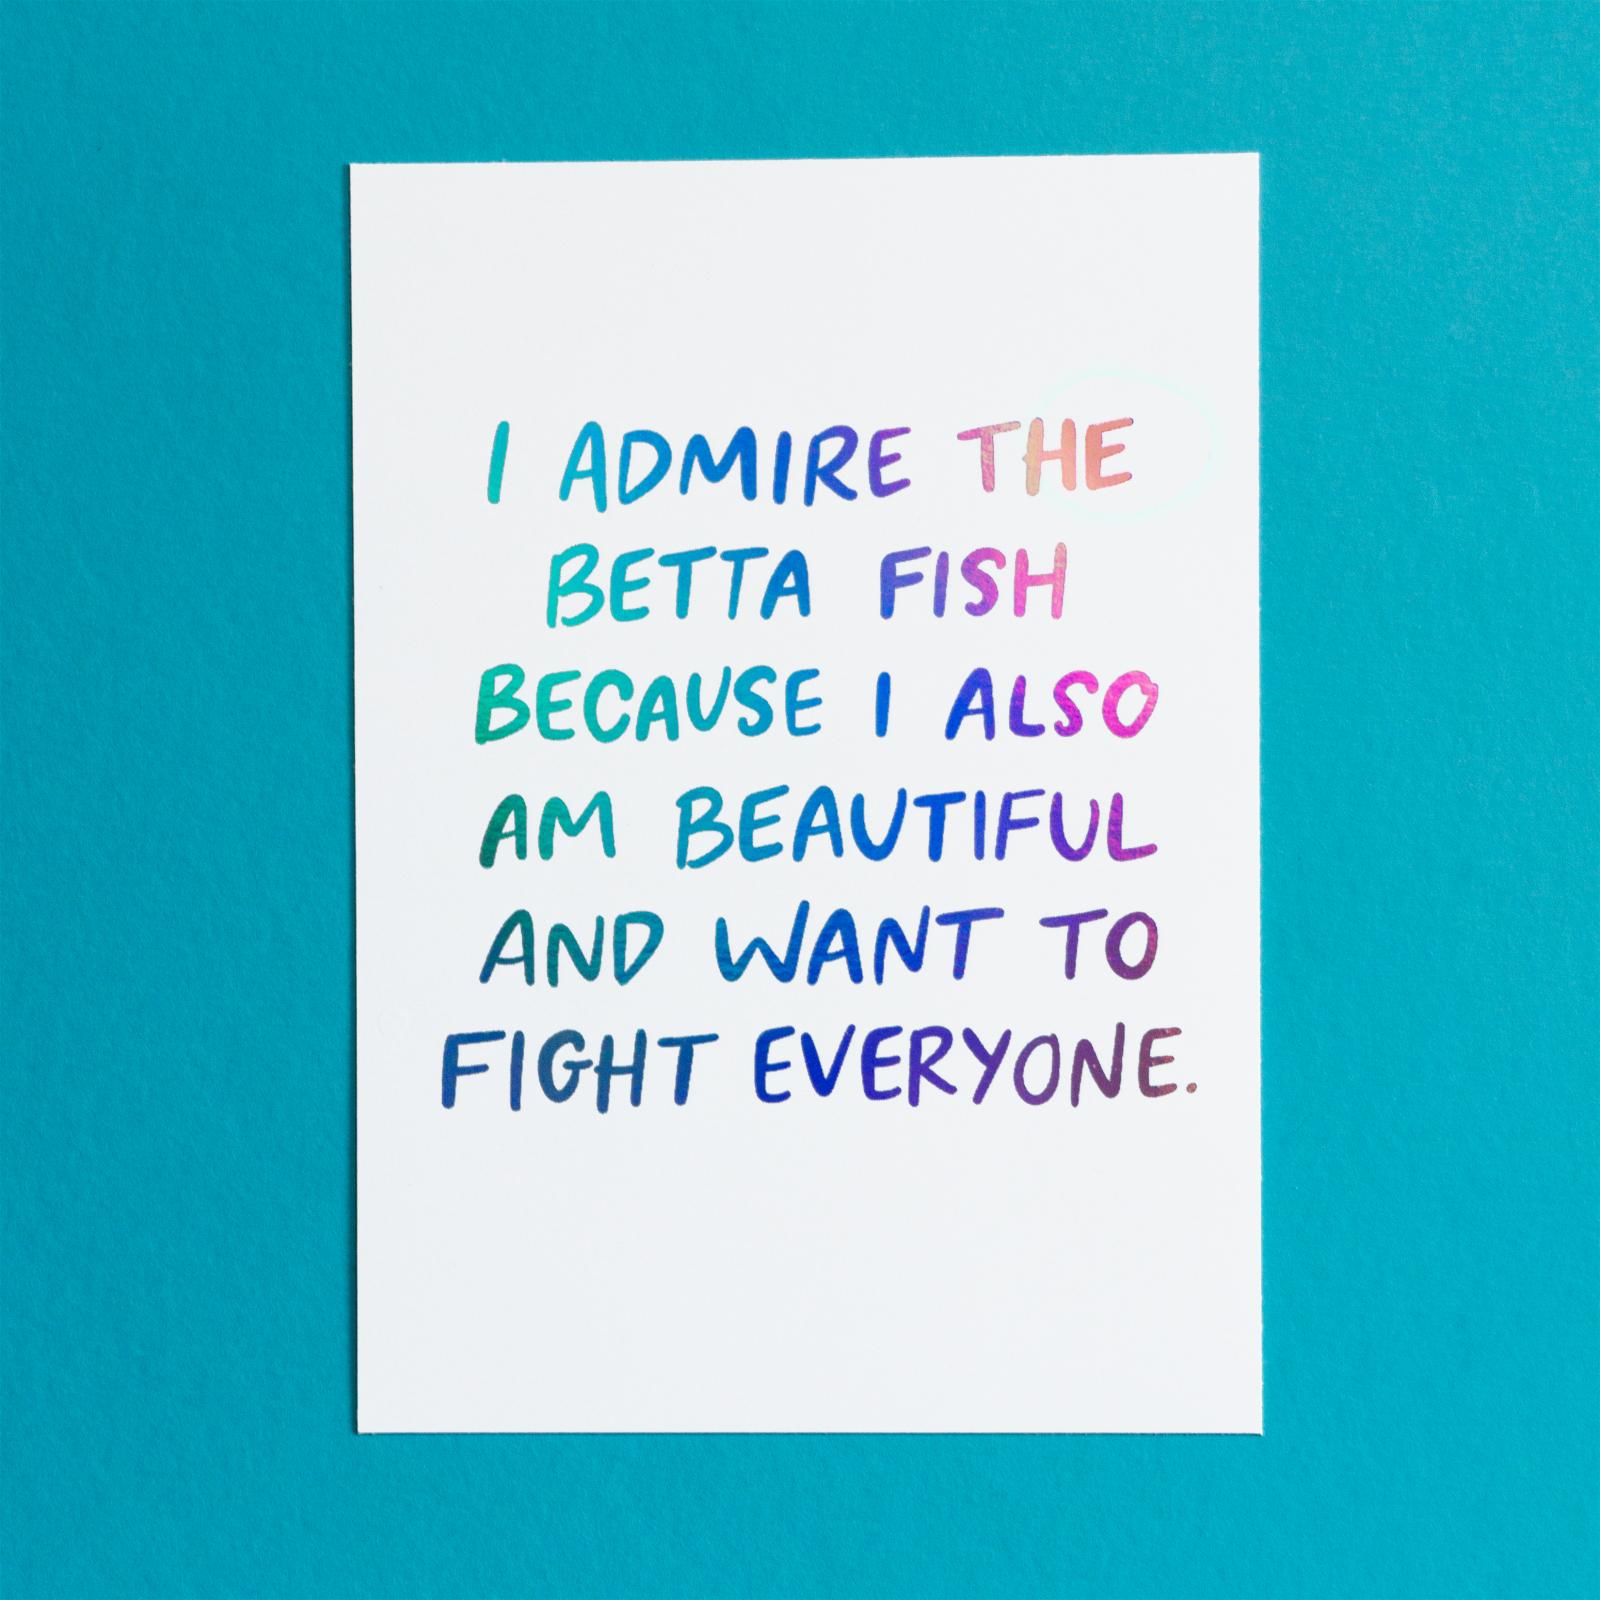 I ADMIRE THE
BETTA FISH
BECAUSE I ALSO
AM BEAUTIFUL
AND WANT TO
FIGHT EVERYONE.